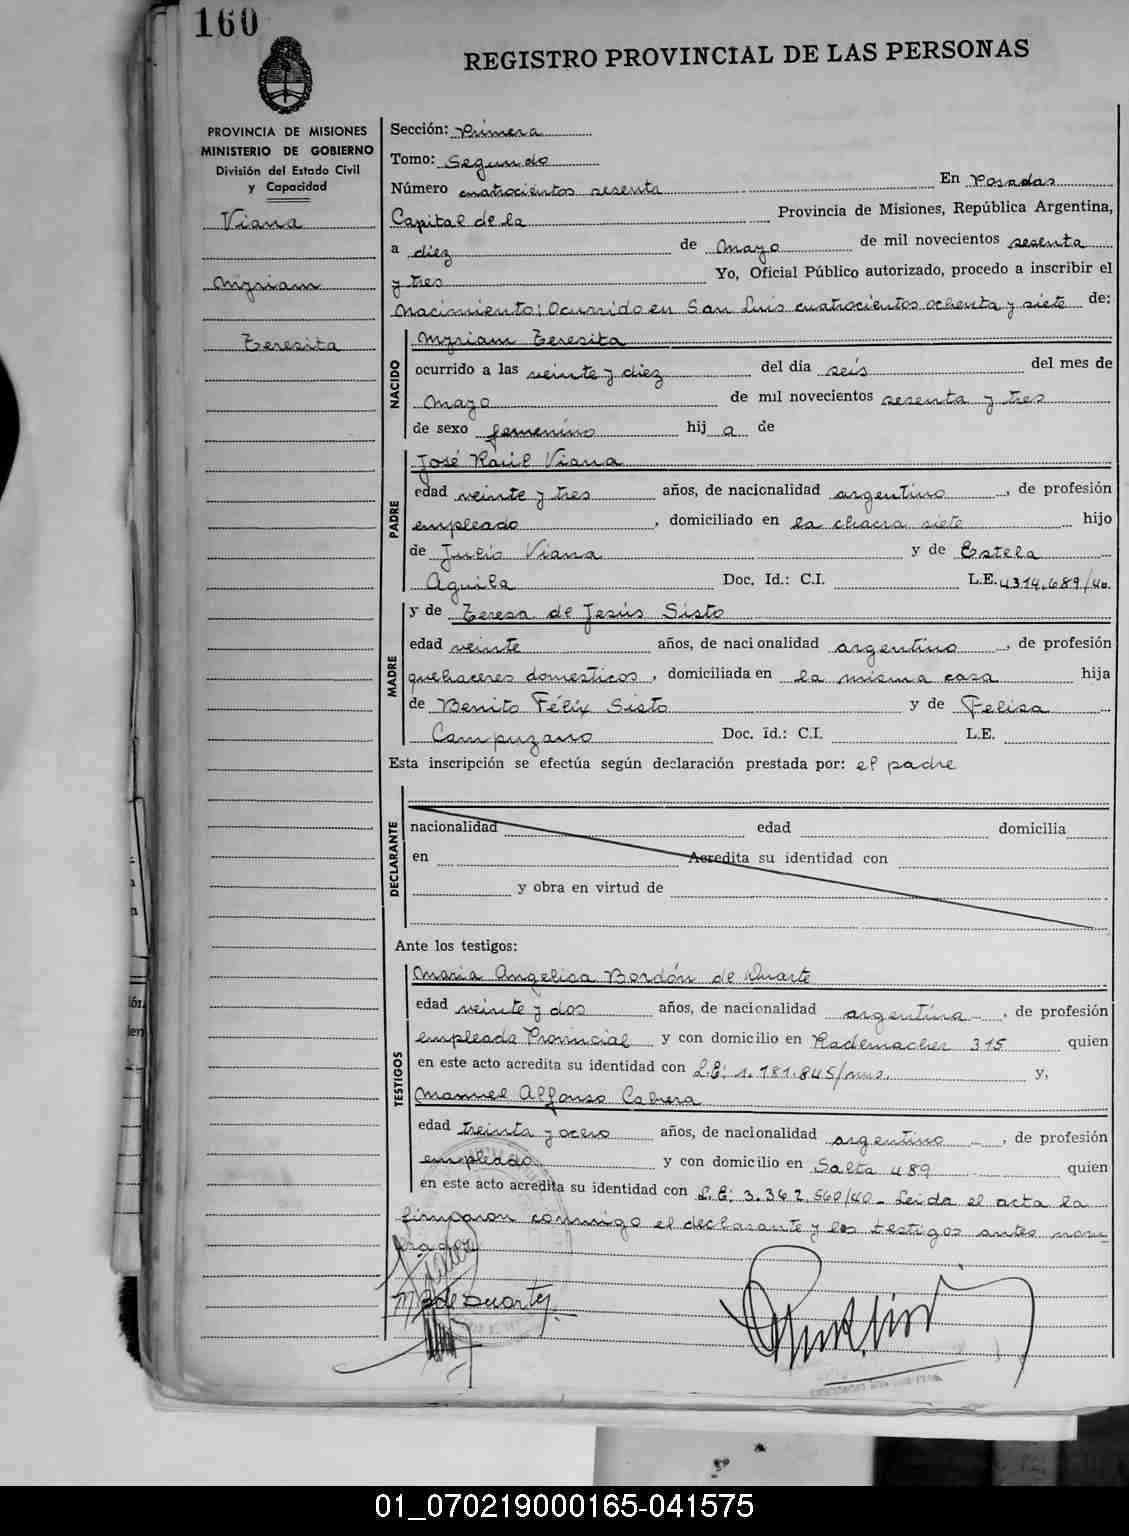 160
REGISTRO PROVINCIAL DE LAS PERSONAS
PROVINCIA DE MISIONES
MINISTERIO DE GOBIERNO
División del Estado Civil
y Capacidad
Viana
Myriam
Teresita
Sección: Primera
Tomo: Segundo
Número cuatrocientos sesenta En Posadas
Capital de la Provincia de Misiones, República Argentina,
a diez de Mayo de mil novecientos sesenta
y tres Yo, Oficial Público autorizado, procedo a inscribir el
Nacimiento: Ocurrido en San Luis cuatrocientos ochenta y siete de:
NACIDO
Myriam Teresita
ocurrido a las veinte y diez del día seis del mes de
Mayo de mil novecientos sesenta y tres
de sexo femenino hij a de
PADRE
José Raúl Viana
edad veinte y tres años, de nacionalidad argentino, de profesión
empleado, domiciliado en la chacra siete hijo
de Julio Viana y de Estela
Aguila Doc. Id.: C.I. L.E. 4314.689/40.
MADRE
y de Teresa de Jesús Sisto
edad veinte años, de nacionalidad argentino, de profesión
quehaceres domesticos, domiciliada en la misma casa hija
de Benito Félix Sisto y de Felisa
Campuzano Doc. Id.: C.I. L.E.
Esta inscripción se efectúa según declaración prestada por: el padre
DECLARANTE
nacionalidad edad domicilia
en Acredita su identidad con
y obra en virtud de
Ante los testigos:
TESTIGOS
Maria Angelica Bordón de Duarte
edad veinte y dos años, de nacionalidad argentina, de profesión
empleada Provincial y con domicilio en Rademacher 315 quien
en este acto acredita su identidad con L.E: 1.181.845/mns. y,
Manuel Alfonso Cabrera
edad treinta y ocho años, de nacionalidad argentino, de profesión
empleado y con domicilio en Salta 489 quien
en este acto acredita su identidad con L.E: 3.362.560/40_ Leida el acta la
firmaron conmigo el declarante y los testigos antes nom-
brados
M B de Duarte
01_070219000165-041575